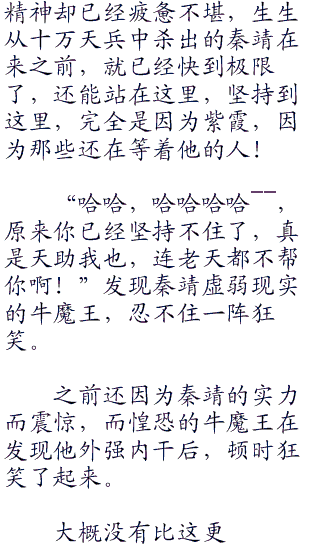 精神却已经疲惫不堪，生生
从十万天兵中杀出的秦靖在
来之前，就已经快到极限
了，还能站在这里，坚持到
这里，完全是因为紫霞，因
为那些还在等着他的人！
“哈哈，哈哈哈哈——，
原来你已经坚持不住了，真
是天助我也，连老天都不帮
你啊！”发现秦靖虚弱现实
的牛魔王，忍不住一阵狂
笑。
之前还因为秦靖的实力
而震惊，而惶恐的牛魔王在
发现他外强内干后，顿时狂
笑了起来。
大概没有比这更